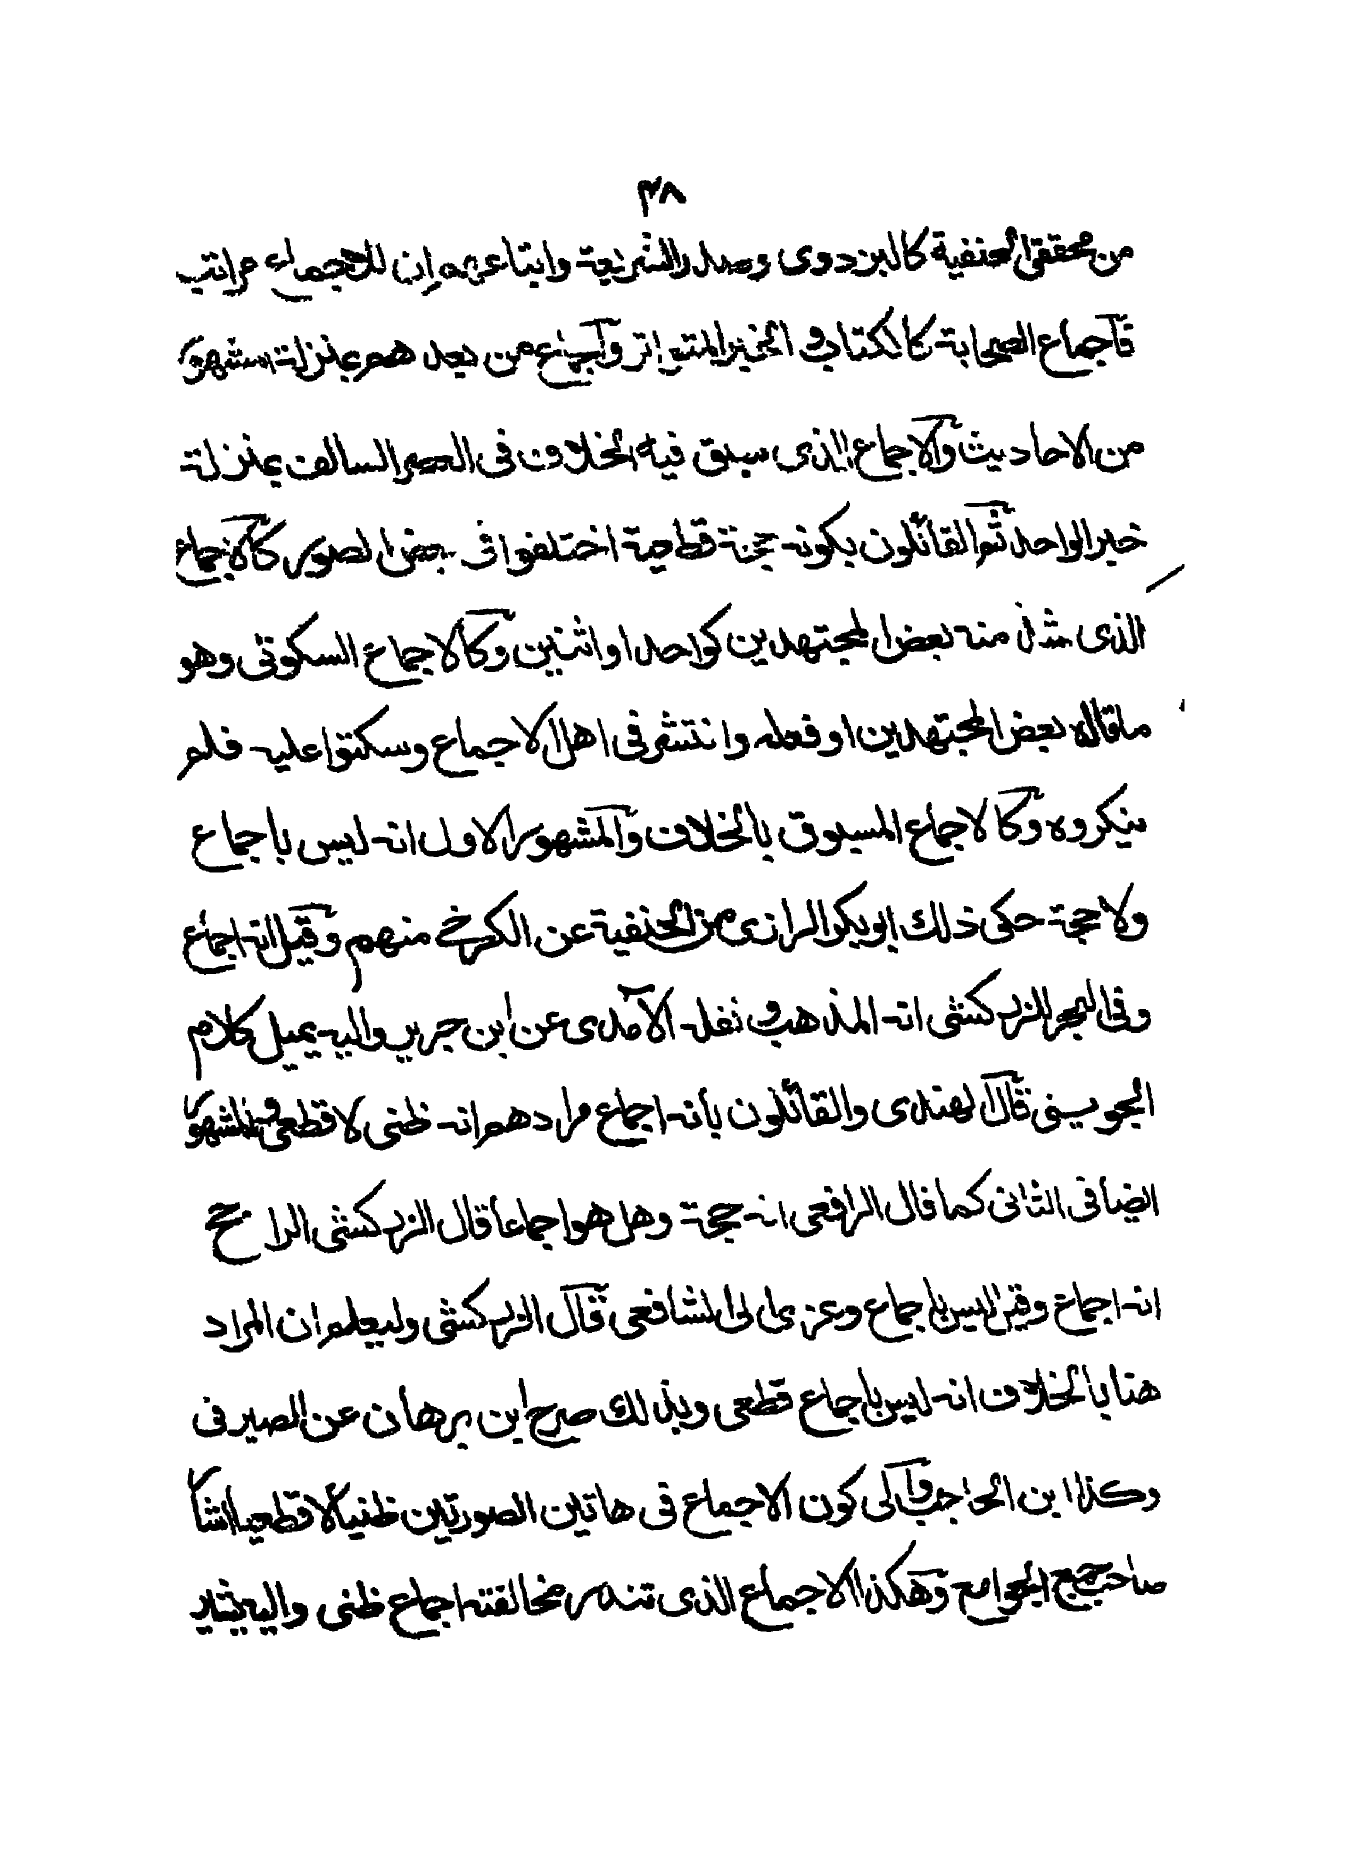 ٣٨
من محققى الحنفية كالبزدوى وصدر الشريعة واتباعهم ان للاجماع مراتب
فاجماع الصحابة كالكتاب والخبر المتواتر واجماع من بعدهم بمنزلة المشهور
من الاحاديث والاجماع الذى سبق فيه الخلاف فى العصر السالف بمنزلة
خبر الواحد ثم القائلون بكونه حجة قطعية اختلفوا فى بعض الصور كالاجماع
الذى شذ منه بعض المجتهدين كواحد او اثنين وكالاجماع السكوتى وهو
ما قاله بعض المجتهدين او فعله وانتشر فى اهل الاجماع وسكتوا عليه فلم
ينكروه وكالاجماع المسبوق بالخلاف والمشهور الاول انه ليس باجماع
ولا حجة حكى ذلك ابو بكر الرازى من الحنفية عن الكرخى منهم وقيل انه اجماع
وفى البحر للزركشى انه المذهب ونقله الآمدى عن ابن جرير واليه يميل كلام
الجوينى قال الهندى والقائلون بأنه اجماع مرادهم انه ظنى لا قطعى والمشهور
ايضا فى الثانى كما قال الرافعى انه حجة وهل هو اجماعا قال الزركشى الراجح
انه اجماع وقيل ليس باجماع وعزى الى الشافعى قال الزركشى وليعلم ان المراد
هنا بالخلاف انه ليس باجماع قطعى وبذلك صرح ابن برهان عن الصيرفى
وكذا ابن الحاجب والى كون الاجماع فى هاتين الصورتين ظنيا لا قطعيا اشار
صاحب جمع الجوامع وهكذا الاجماع الذى تندر مخالفته اجماع ظنى واليه يشير